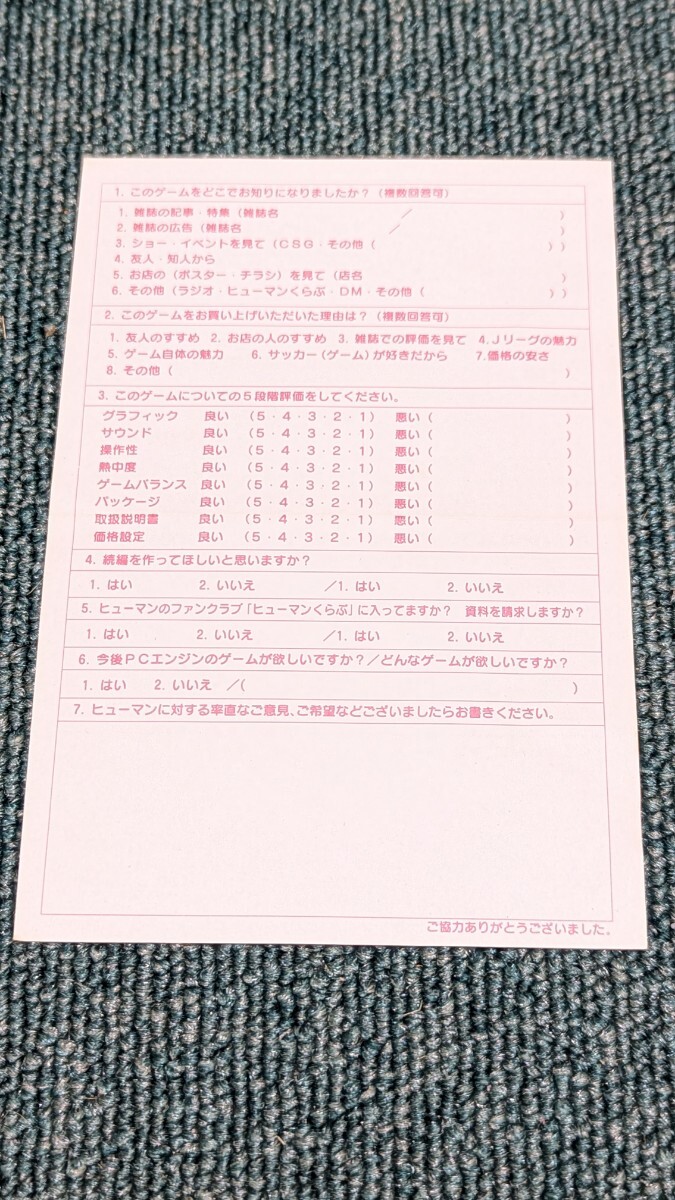 1. このゲームをどこでお知りになりましたか？（複数回答可）
1. 雑誌の記事・特集（雑誌名　／　）
2. 雑誌の広告（雑誌名　／　）
3. ショー・イベントを見て（ＣＳＧ・その他（　））
4. 友人・知人から
5. お店の（ポスター・チラシ）を見て（店名　）
6. その他（ラジオ・ヒューマンくらぶ・ＤＭ・その他（　））
2. このゲームをお買い上げいただいた理由は？（複数回答可）
1. 友人のすすめ　2. お店の人のすすめ　3. 雑誌での評価を見て　4.Ｊリーグの魅力
5. ゲーム自体の魅力　6. サッカー（ゲーム）が好きだから　7.価格の安さ
8. その他（　）
3. このゲームについての５段階評価をしてください。
グラフィック　良い　（５・４・３・２・１）　悪い（　）
サウンド　良い　（５・４・３・２・１）　悪い（　）
操作性　良い　（５・４・３・２・１）　悪い（　）
熱中度　良い　（５・４・３・２・１）　悪い（　）
ゲームバランス　良い　（５・４・３・２・１）　悪い（　）
パッケージ　良い　（５・４・３・２・１）　悪い（　）
取扱説明書　良い　（５・４・３・２・１）　悪い（　）
価格設定　良い　（５・４・３・２・１）　悪い（　）
4. 続編を作ってほしいと思いますか？
1. はい　2. いいえ　／1. はい　2. いいえ
5. ヒューマンのファンクラブ「ヒューマンくらぶ」に入ってますか？　資料を請求しますか？
1. はい　2. いいえ　／1. はい　2. いいえ
6. 今後ＰＣエンジンのゲームが欲しいですか？／どんなゲームが欲しいですか？
1. はい　2. いいえ　／（　）
7. ヒューマンに対する率直なご意見、ご希望などございましたらお書きください。
ご協力ありがとうございました。